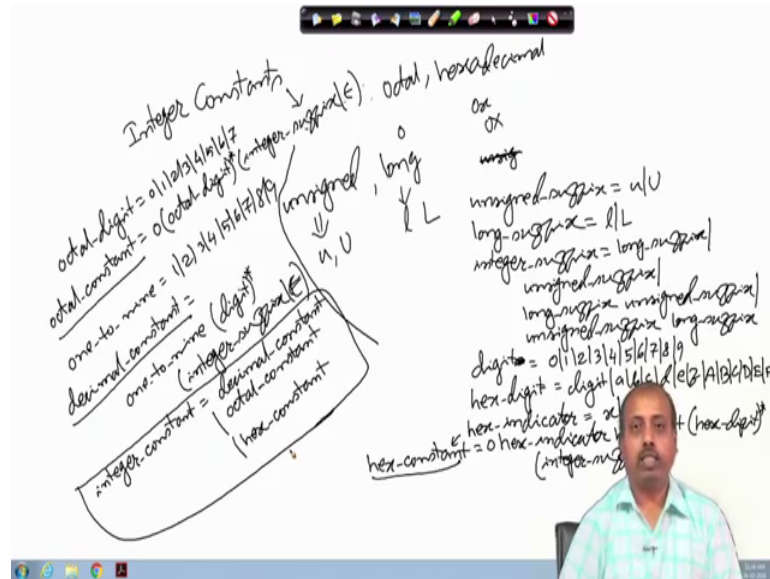 Integer Constants : octal, hexadecimal
0
0x
0X
unsigned, long
u, U
l L
octal-digit = 0|1|2|3|4|5|6|7
octal-constant = 0(octal-digit)* (integer-suffix|ε)
one-to-nine = 1|2|3|4|5|6|7|8|9
decimal-constant =
one-to-nine (digit)*
(integer-suffix|ε)
integer-constant = decimal-constant
|octal-constant
|hex-constant
unsig
unsigned-suffix = u|U
long-suffix = l|L
integer-suffix = long-suffix|
unsigned-suffix|
long-suffix unsigned-suffix|
unsigned-suffix long-suffix
digit = 0|1|2|3|4|5|6|7|8|9
hex-digit = digit|a|b|c|d|e|f|A|B|C|D|E|F
hex-indicator = x|
hex-constant = 0 hex-indicator (hex-digit)*
(integer-suf